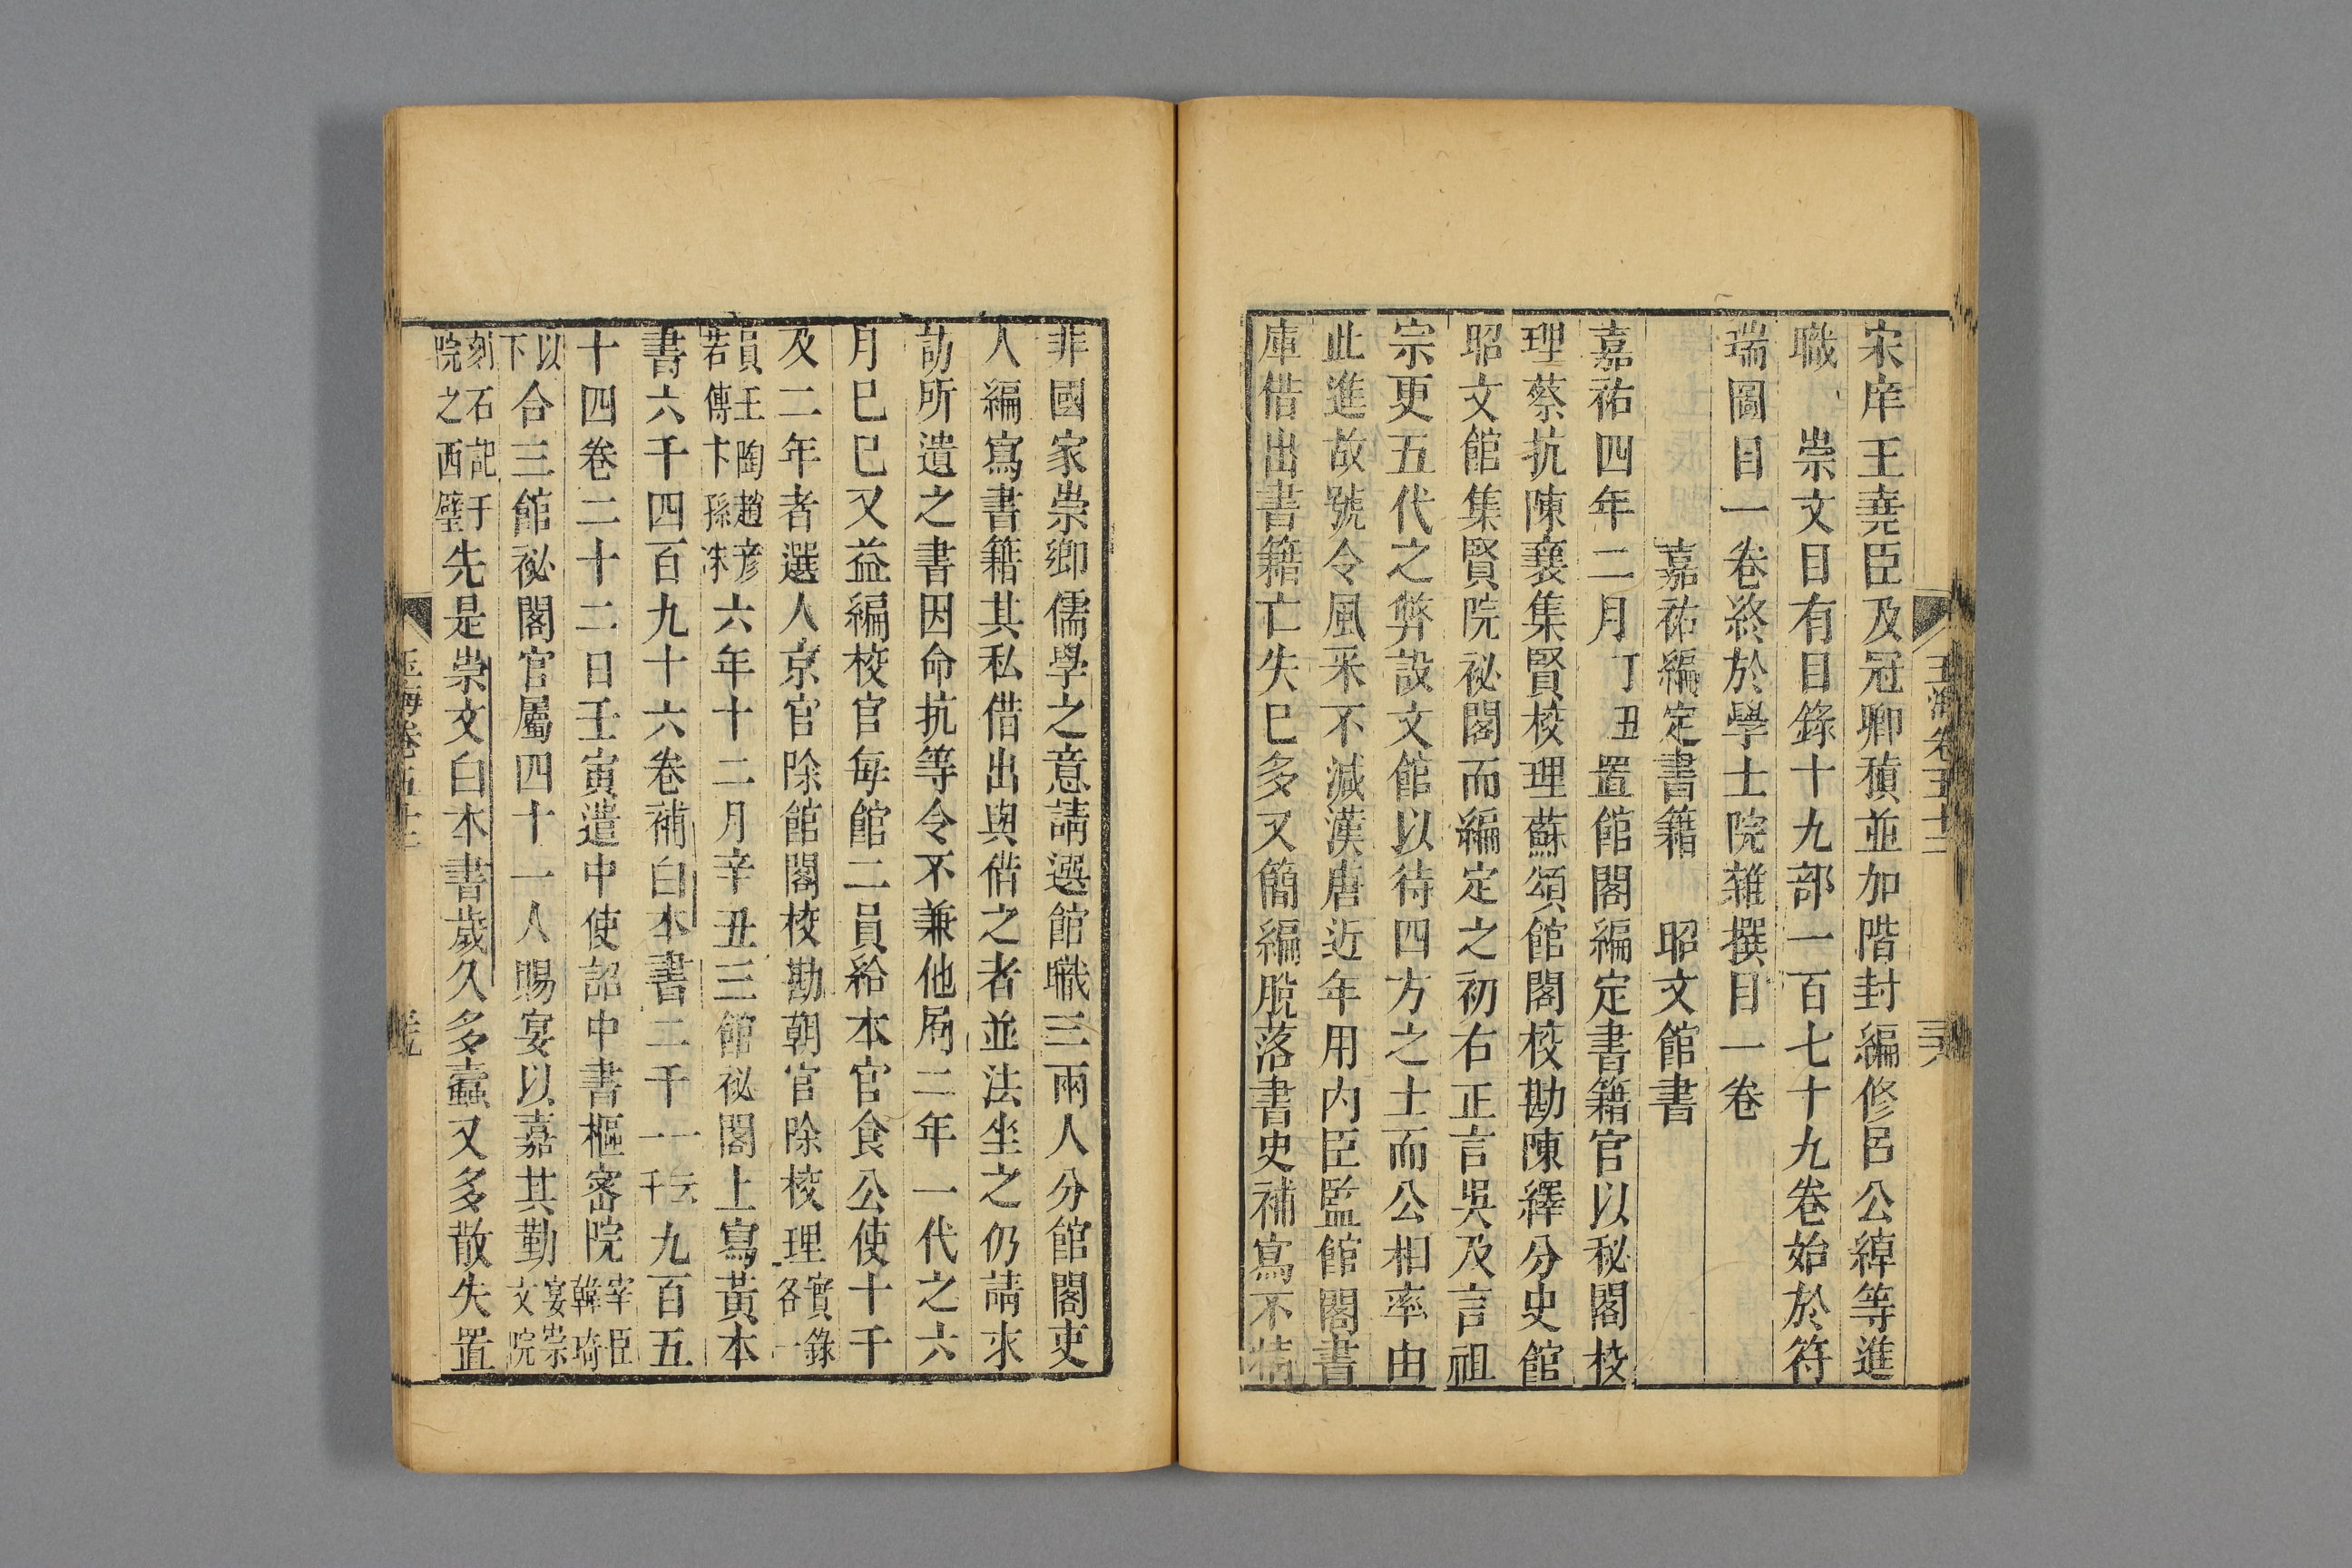 宋庠王堯臣及冠卿稹並加階封編修呂公綽等進
職　崇文目有目錄十九部一百七十九卷始於符
瑞圖目一卷終於學士院雜撰目一卷
嘉祐編定書籍　昭文館書
嘉祐四年二月丁丑置館閣編定書籍官以秘閣校
理蔡抗陳襄集賢校理蘇頌館閣校勘陳繹分史館
昭文館集賢院祕閣而編定之初右正言吳及言祖
宗更五代之弊設文館以待四方之士而公相率由
此進故號令風采不減漢唐近年用內臣監館閣書
庫借出書籍亡失已多又簡編脫落書史補寫不精
非國家崇鄉儒學之意請選館職三兩人分館閣吏
人編寫書籍其私借出與借之者並法坐之仍請求
訪所遺之書因命抗等令不兼他局二年一代之六
月己巳又益編校官每館二員給本官食公使十千
及二年者選人京官除館閣校勘朝官除校理實錄各一
員王陶趙彥若傅卞孫洙六年十二月辛丑三館祕閣上寫黃本
書六千四百九十六卷補白本書二千一云一千九百五
十四卷二十二日壬寅遣中使詔中書樞密院宰臣韓琦
以下合三館祕閣官屬四十一人賜宴以嘉其勤宴崇文院
刻石記于院之西壁先是崇文白本書歲久多蠹又多散失置
玉海卷五十二